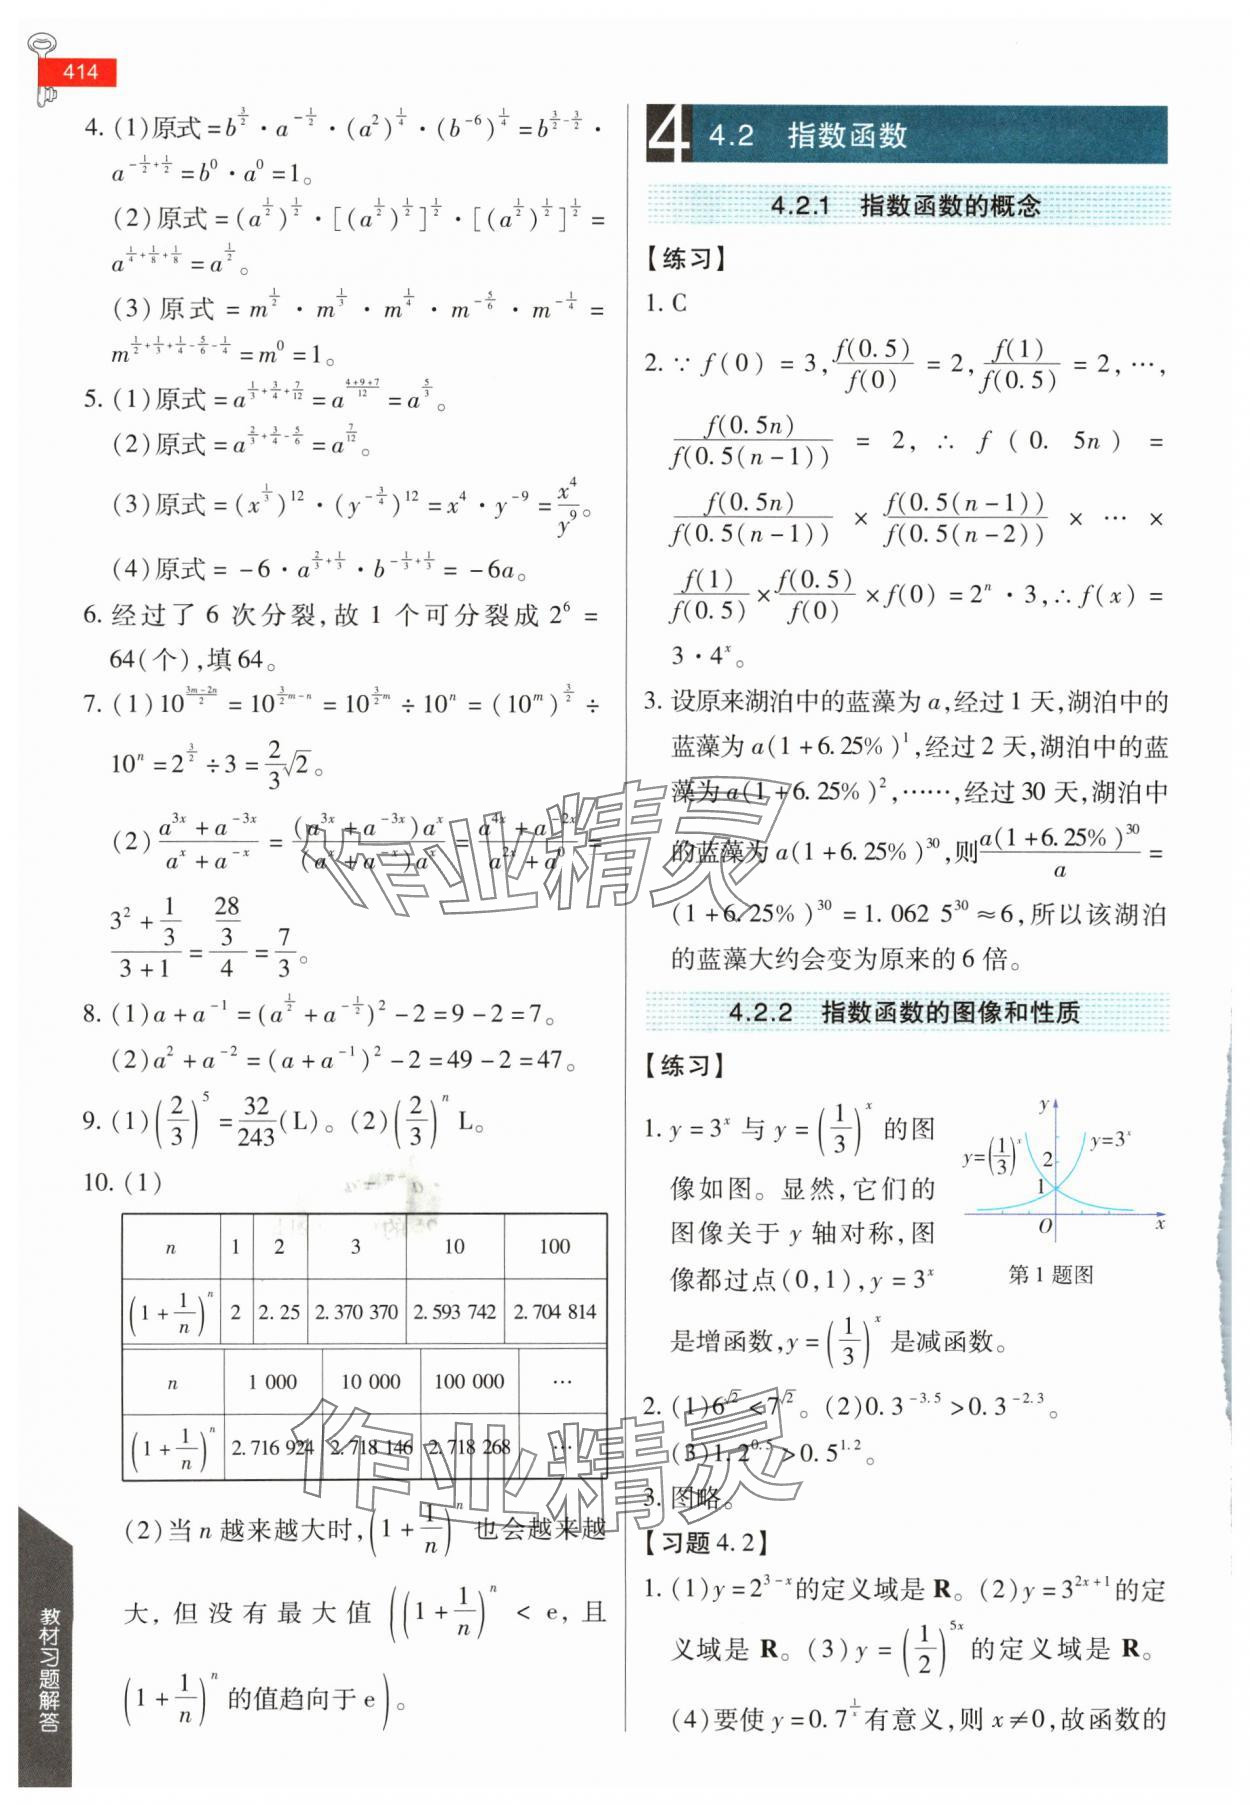 414
4. (1)原式=b^{3/2}·a^{-1/2}·(a^2)^{1/4}·(b^{-6})^{1/4}=b^{3/2-3/2}·
a^{-1/2+1/2}=b^0·a^0=1。
(2)原式=(a^{1/2})^{1/2}·[(a^{1/2})^{1/2}]^{1/2}·[(a^{1/2})^{1/2}]^{1/2}=
a^{1/4+1/8+1/8}=a^{1/2}。
(3)原式=m^{1/2}·m^{1/3}·m^{1/4}·m^{-5/6}·m^{-1/4}=
m^{1/2+1/3+1/4-5/6-1/4}=m^0=1。
5. (1)原式=a^{1/3+3/4+7/12}=a^{(4+9+7)/12}=a^{5/3}。
(2)原式=a^{2/3+3/4-5/6}=a^{7/12}。
(3)原式=(x^{1/3})^{12}·(y^{-3/4})^{12}=x^4·y^{-9}=x^4/y^9。
(4)原式=-6·a^{2/3+1/3}·b^{-1/3+1/3}=-6a。
6. 经过了6次分裂,故1个可分裂成2^6=
64(个),填64。
7. (1)10^{(3m-2n)/2}=10^{3/2 m-n}=10^{3/2 m}÷10^n=(10^m)^{3/2}÷
10^n=2^{3/2}÷3=2/3√2。
(2)(a^{3x}+a^{-3x})/(a^x+a^{-x})=((a^{3x}+a^{-3x})a^x)/((a^x+a^{-x})a^x)=(a^{4x}+a^{-2x})/(a^{2x}+a^0)=
(3^2+1/3)/(3+1)=(28/3)/4=7/3。
8. (1)a+a^{-1}=(a^{1/2}+a^{-1/2})^2-2=9-2=7。
(2)a^2+a^{-2}=(a+a^{-1})^2-2=49-2=47。
9. (1)(2/3)^5=32/243(L)。(2)(2/3)^n L。
10. (1)
n 1 2 3 10 100
(1+1/n)^n 2 2.25 2.370 370 2.593 742 2.704 814
n 1 000 10 000 100 000 …
(1+1/n)^n 2.716 924 2.718 146 2.718 268 …
(2)当n越来越大时,(1+1/n)^n也会越来越
大,但没有最大值((1+1/n)^n<e,且
(1+1/n)^n的值趋向于e)。
教材习题解答
4 4.2 指数函数
4.2.1 指数函数的概念
【练习】
1. C
2. ∵f(0)=3,f(0.5)/f(0)=2,f(1)/f(0.5)=2,…,
f(0.5n)/f(0.5(n-1))=2,∴f(0.5n)=
f(0.5n)/f(0.5(n-1))×f(0.5(n-1))/f(0.5(n-2))×…×
f(1)/f(0.5)×f(0.5)/f(0)×f(0)=2^n·3,∴f(x)=
3·4^x。
3. 设原来湖泊中的蓝藻为a,经过1天,湖泊中的
蓝藻为a(1+6.25%)^1,经过2天,湖泊中的蓝
藻为a(1+6.25%)^2,……,经过30天,湖泊中
的蓝藻为a(1+6.25%)^{30},则a(1+6.25%)^{30}/a=
(1+6.25%)^{30}=1.062 5^{30}≈6,所以该湖泊
的蓝藻大约会变为原来的6倍。
4.2.2 指数函数的图像和性质
【练习】
1. y=3^x与y=(1/3)^x的图
像如图。显然,它们的
图像关于y轴对称,图
像都过点(0,1),y=3^x
是增函数,y=(1/3)^x是减函数。
y
y=(1/3)^x
y=3^x
2
1
O
x
第1题图
2. (1)6^{√2}<7^{√2}。(2)0.3^{-3.5}>0.3^{-2.3}。
(3)1.2^{0.5}>0.5^{1.2}。
3. 图略。
【习题4.2】
1. (1)y=2^{3-x}的定义域是R。(2)y=3^{2x+1}的定
义域是R。(3)y=(1/2)^{5x}的定义域是R。
(4)要使y=0.7^{1/x}有意义,则x≠0,故函数的
作业精灵
作业精灵